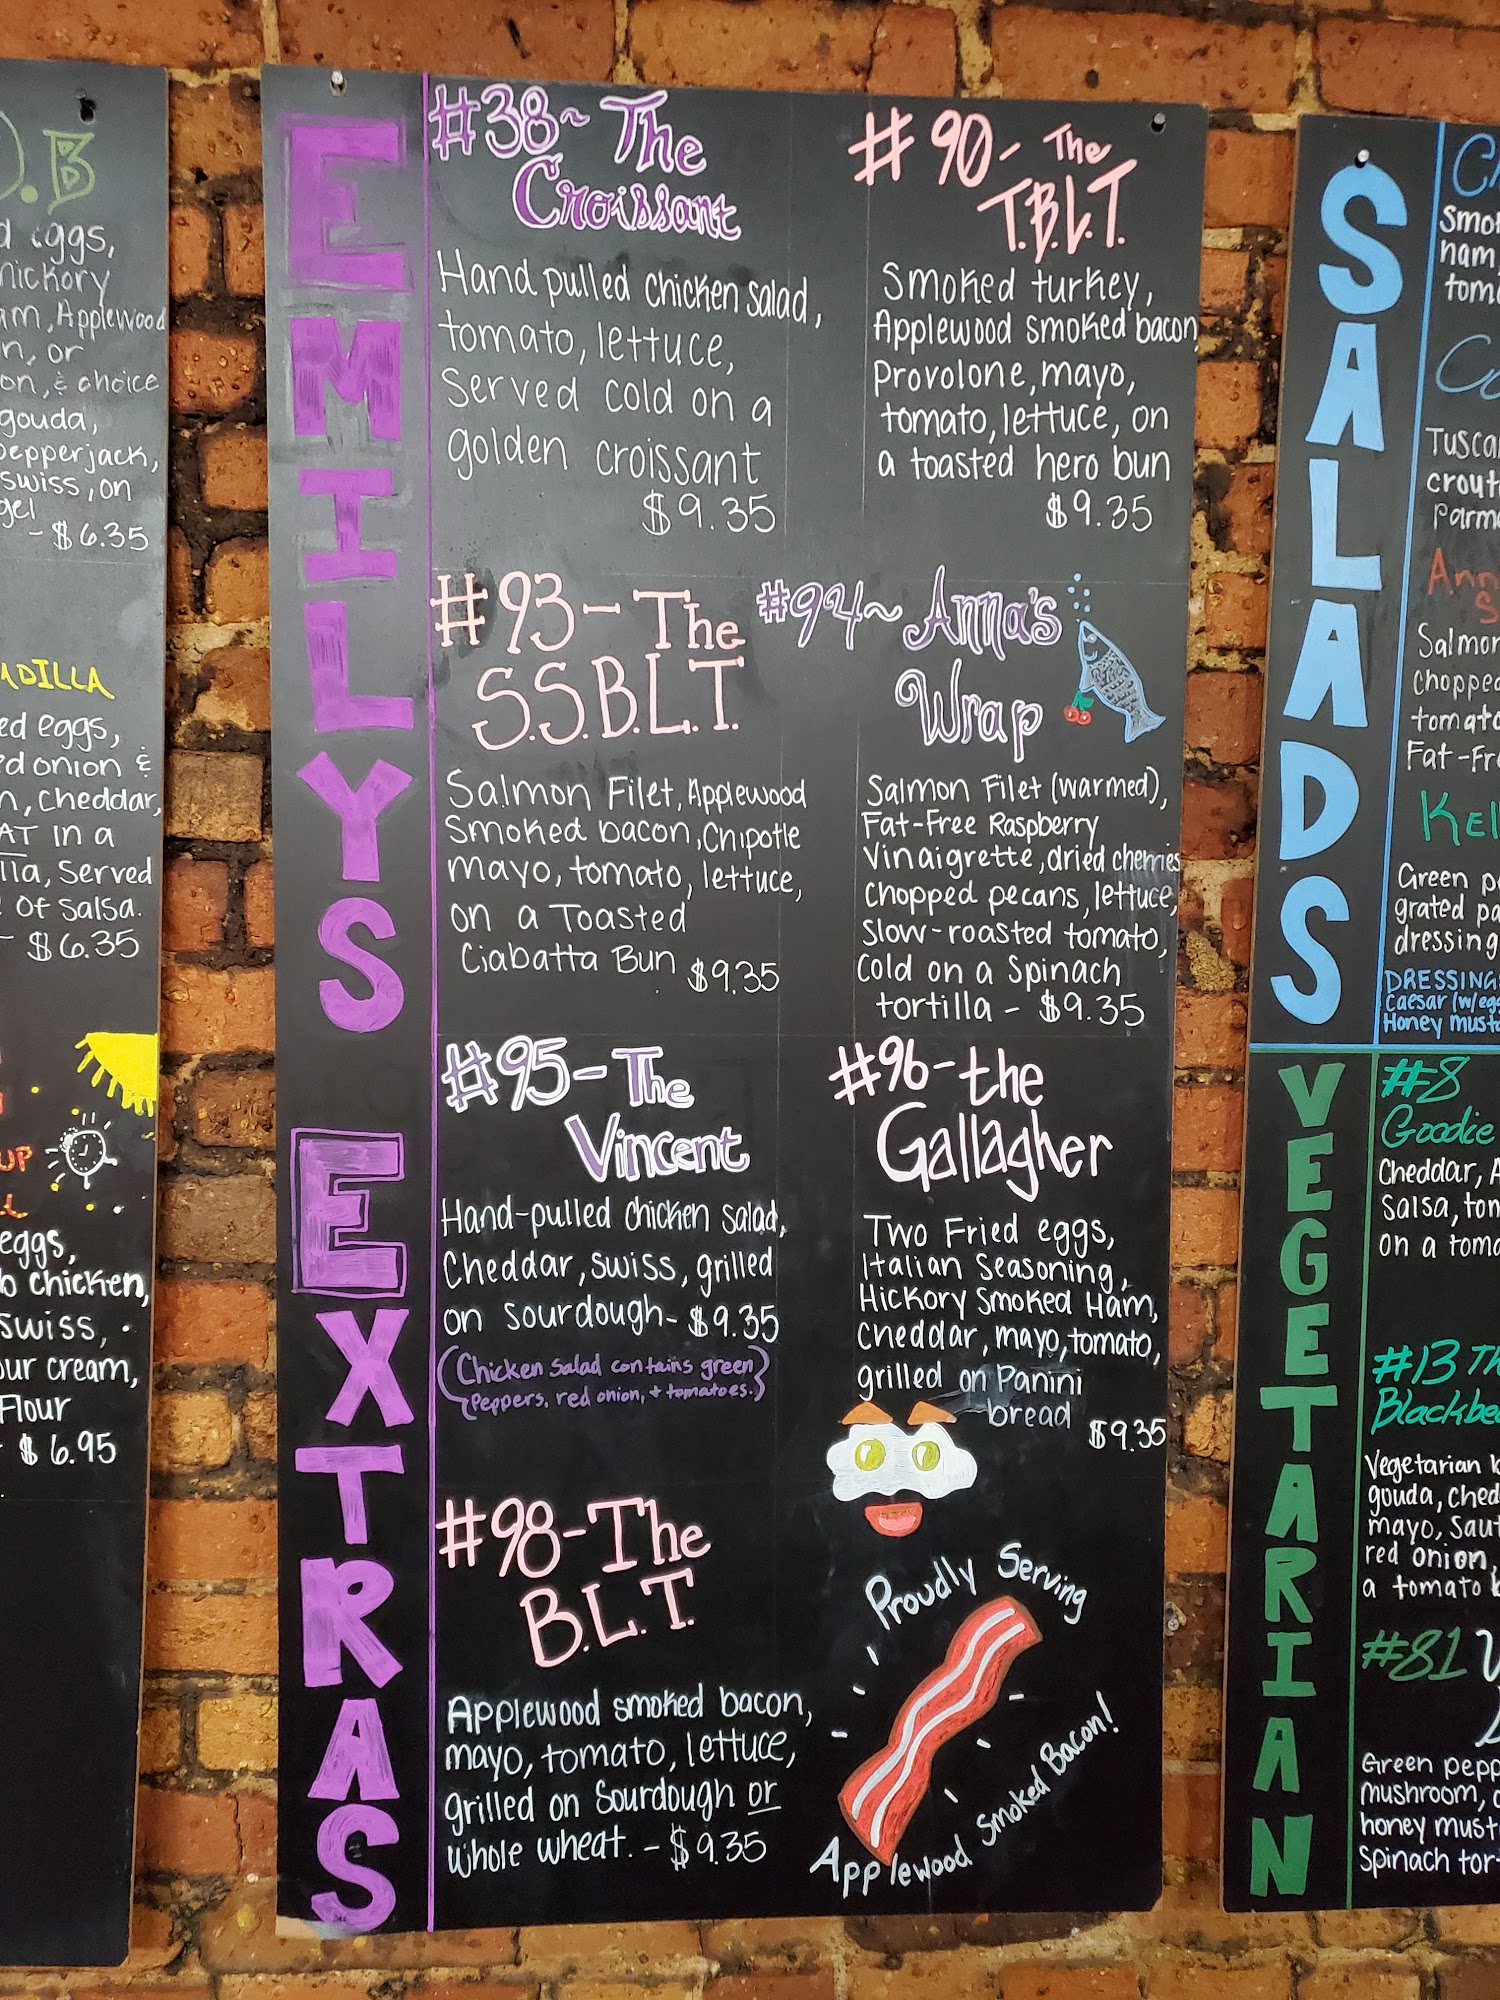 EMILYS EXTRAS
#38~ The
Croissant
Hand pulled chicken salad,
tomato, lettuce,
Served cold on a
golden croissant
$9.35
#90- The
T.B.L.T.
Smoked turkey,
Applewood smoked bacon
Provolone, mayo,
tomato, lettuce, on
a toasted hero bun
$9.35
#93- The
S.S.B.L.T.
Salmon Filet, Applewood
Smoked bacon, Chipotle
mayo, tomato, lettuce,
on a Toasted
Ciabatta Bun $9.35
#94~ Anna's
Wrap
Salmon Filet (warmed),
Fat-Free Raspberry
Vinaigrette, dried cherries
Chopped pecans, lettuce,
Slow-roasted tomato,
Cold on a Spinach
tortilla - $9.35
#95- The
Vincent
Hand-pulled chicken salad,
Cheddar, swiss, grilled
on sourdough- $9.35
(Chicken Salad contains green
Peppers, red onion, + tomatoes.)
#96- the
Gallagher
Two Fried eggs,
Italian Seasoning,
Hickory Smoked Ham,
Cheddar, mayo, tomato,
grilled on Panini
bread $9.35
#98- The
B.L.T.
Applewood smoked bacon,
mayo, tomato, lettuce,
grilled on Sourdough or
whole wheat. - $9.35
Proudly Serving
Applewood Smoked Bacon!
.B
eggs,
hickory
Applewood
or
& choice
gouda,
pepperjack,
swiss, on
- $6.35
eggs,
onion &
Cheddar,
in a
Served
of salsa.
- $6.35
UP
eggs,
chicken,
swiss,
sour cream,
Flour
$6.95
SALADS
Salmon
chopped
Fat-Free
Green
dressing
DRESSINGS
Caesar
Honey
VEGETARIAN
#8
Goodie
Cheddar,
Salsa,
on a
#13
Vegetarian
gouda,
mayo,
red onion,
a tomato
#81
Green
mushroom,
honey
Spinach